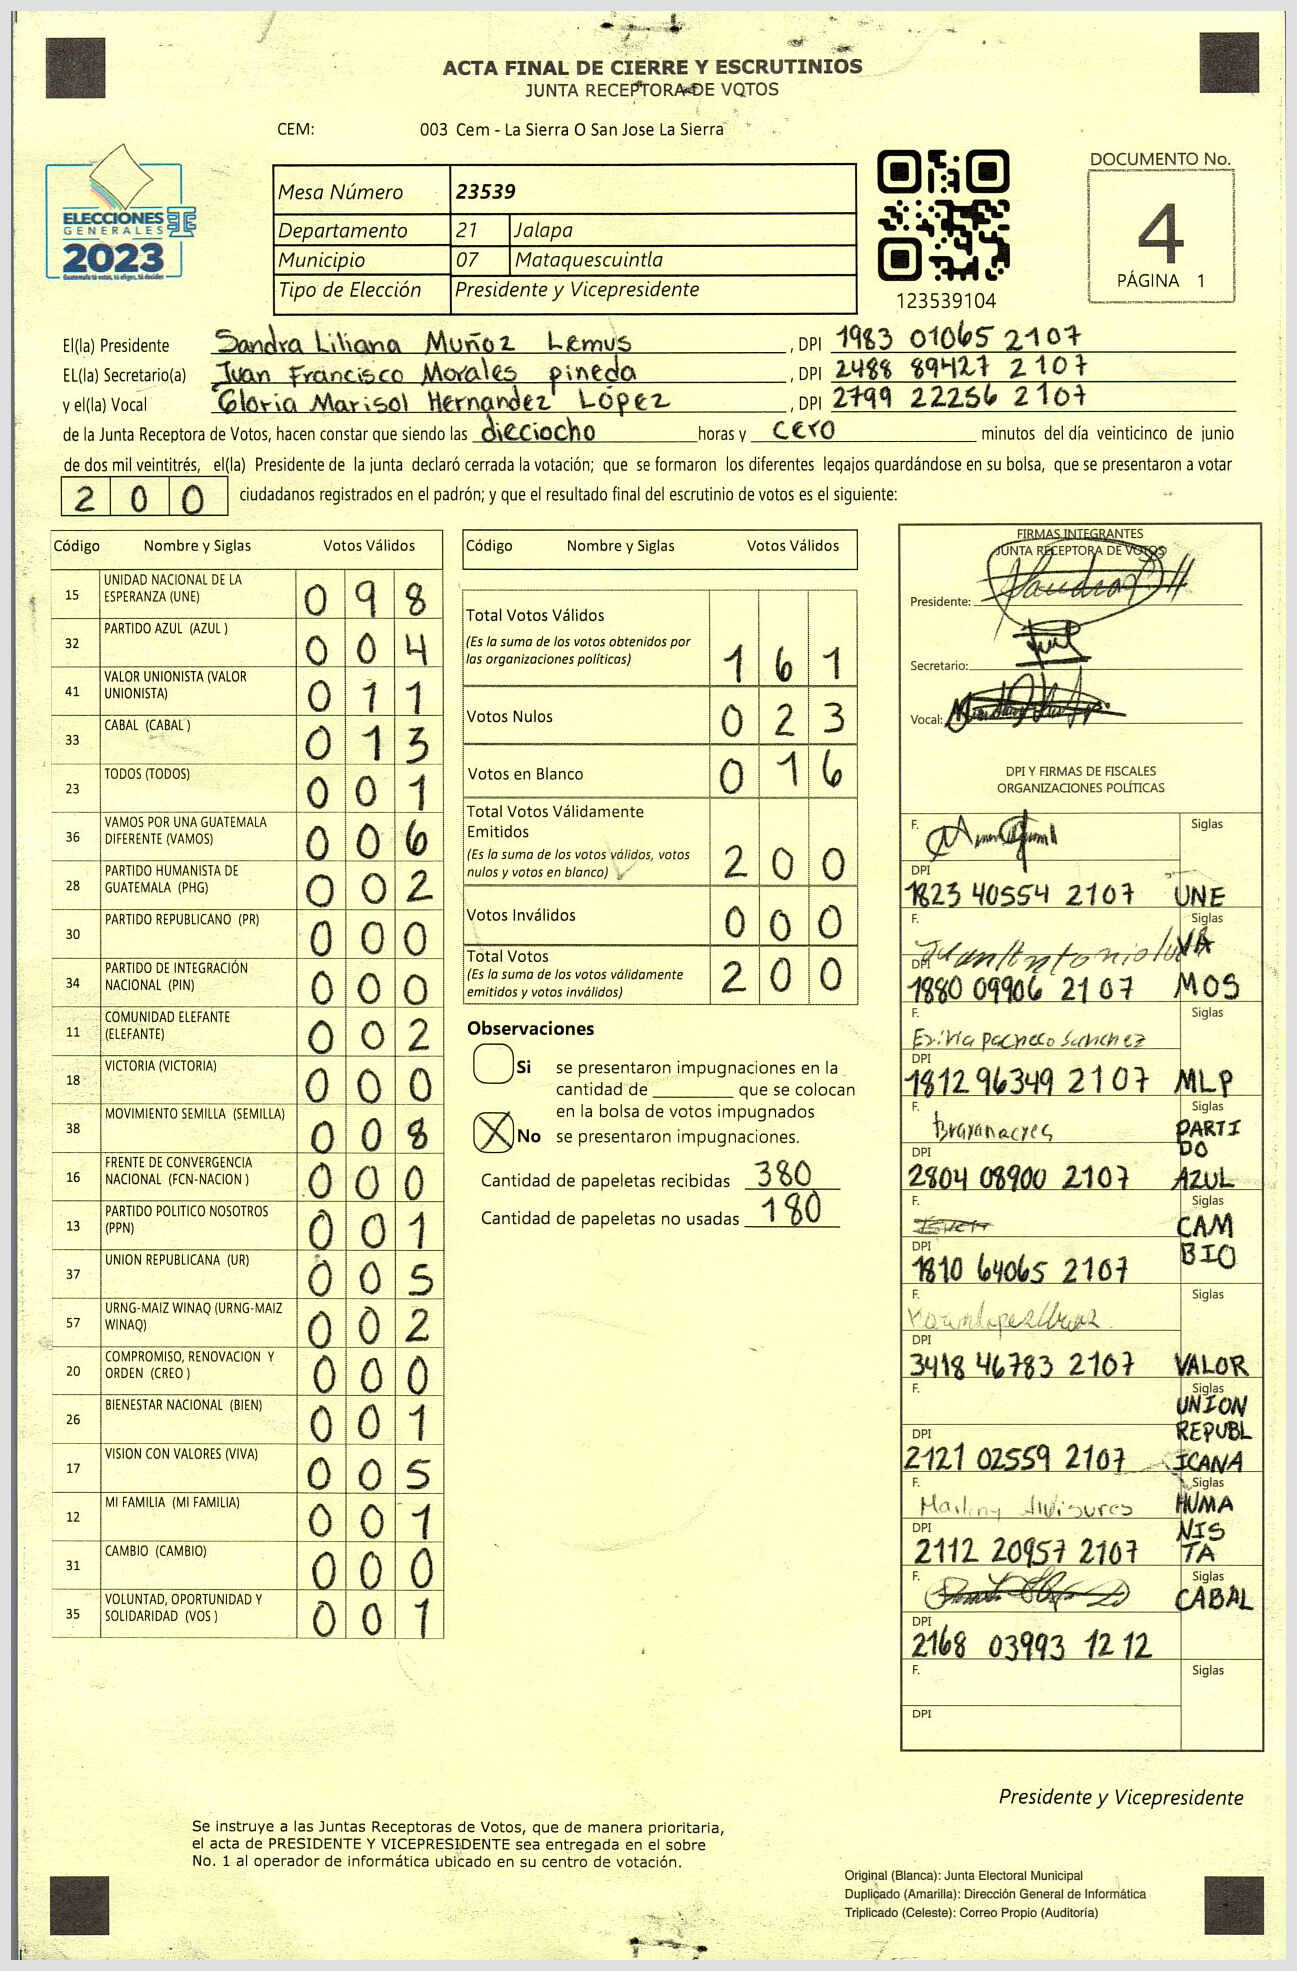 ACTA FINAL DE CIERRE Y ESCRUTINIOS
JUNTA RECEPTORA DE VOTOS
CEM: 003 Cem - La Sierra O San Jose La Sierra
ELECCIONES
GENERALES
2023
Guatemala tú votas, tú eliges, tú decides
Mesa Número 23539
Departamento 21 Jalapa
Municipio 07 Mataquescuintla
Tipo de Elección Presidente y Vicepresidente
123539104
DOCUMENTO No.
4
PÁGINA 1
El(la) Presidente Sandra Liliana Muñoz Lemus , DPI 1983 01065 2107
EL(la) Secretario(a) Juan Francisco Morales pineda , DPI 2488 89427 2107
y el(la) Vocal Gloria Marisol Hernandez López , DPI 2799 22256 2107
de la Junta Receptora de Votos, hacen constar que siendo las dieciocho horas y cero minutos del día veinticinco de junio
de dos mil veintitrés, el(la) Presidente de la junta declaró cerrada la votación; que se formaron los diferentes legajos guardándose en su bolsa, que se presentaron a votar
200 ciudadanos registrados en el padrón; y que el resultado final del escrutinio de votos es el siguiente:
Código Nombre y Siglas Votos Válidos
15 UNIDAD NACIONAL DE LA ESPERANZA (UNE) 098
32 PARTIDO AZUL (AZUL ) 004
41 VALOR UNIONISTA (VALOR UNIONISTA) 011
33 CABAL (CABAL ) 013
23 TODOS (TODOS) 001
36 VAMOS POR UNA GUATEMALA DIFERENTE (VAMOS) 006
28 PARTIDO HUMANISTA DE GUATEMALA (PHG) 002
30 PARTIDO REPUBLICANO (PR) 000
34 PARTIDO DE INTEGRACIÓN NACIONAL (PIN) 000
11 COMUNIDAD ELEFANTE (ELEFANTE) 002
18 VICTORIA (VICTORIA) 000
38 MOVIMIENTO SEMILLA (SEMILLA) 008
16 FRENTE DE CONVERGENCIA NACIONAL (FCN-NACION ) 000
13 PARTIDO POLITICO NOSOTROS (PPN) 001
37 UNION REPUBLICANA (UR) 005
57 URNG-MAIZ WINAQ (URNG-MAIZ WINAQ) 002
20 COMPROMISO, RENOVACION Y ORDEN (CREO ) 000
26 BIENESTAR NACIONAL (BIEN) 001
17 VISION CON VALORES (VIVA) 005
12 MI FAMILIA (MI FAMILIA) 001
31 CAMBIO (CAMBIO) 000
35 VOLUNTAD, OPORTUNIDAD Y SOLIDARIDAD (VOS ) 001
Código Nombre y Siglas Votos Válidos
Total Votos Válidos
(Es la suma de los votos obtenidos por
las organizaciones políticas) 161
Votos Nulos 023
Votos en Blanco 016
Total Votos Válidamente
Emitidos
(Es la suma de los votos válidos, votos
nulos y votos en blanco) 200
Votos Inválidos 000
Total Votos
(Es la suma de los votos válidamente
emitidos y votos inválidos) 200
Observaciones
Si se presentaron impugnaciones en la
cantidad de ________ que se colocan
en la bolsa de votos impugnados
X No se presentaron impugnaciones.
Cantidad de papeletas recibidas 380
Cantidad de papeletas no usadas 180
FIRMAS INTEGRANTES
JUNTA RECEPTORA DE VOTOS
Presidente:
Secretario:
Vocal:
DPI Y FIRMAS DE FISCALES
ORGANIZACIONES POLÍTICAS
F. Siglas
DPI
1823 40554 2107 UNE
F. Juan Antonio Siglas
VA
DPI
1880 09906 2107 MOS
F. Siglas
pacheco Sanchez
DPI
1812 96349 2107 MLP
F. Siglas
PARTI
DO
DPI
2804 08900 2107 AZUL
F. Siglas
CAM
DPI
1810 64065 2107 BIO
F. Siglas
DPI
3418 46783 2107 VALOR
F. Siglas
UNION
REPUBL
DPI
2121 02559 2107 ICANA
F. Siglas
HUMA
NIS
DPI
2112 20957 2107 TA
F. Siglas
CABAL
DPI
2168 03993 1212
F. Siglas
DPI
Presidente y Vicepresidente
Se instruye a las Juntas Receptoras de Votos, que de manera prioritaria,
el acta de PRESIDENTE Y VICEPRESIDENTE sea entregada en el sobre
No. 1 al operador de informática ubicado en su centro de votación.
Original (Blanca): Junta Electoral Municipal
Duplicado (Amarilla): Dirección General de Informática
Triplicado (Celeste): Correo Propio (Auditoría)